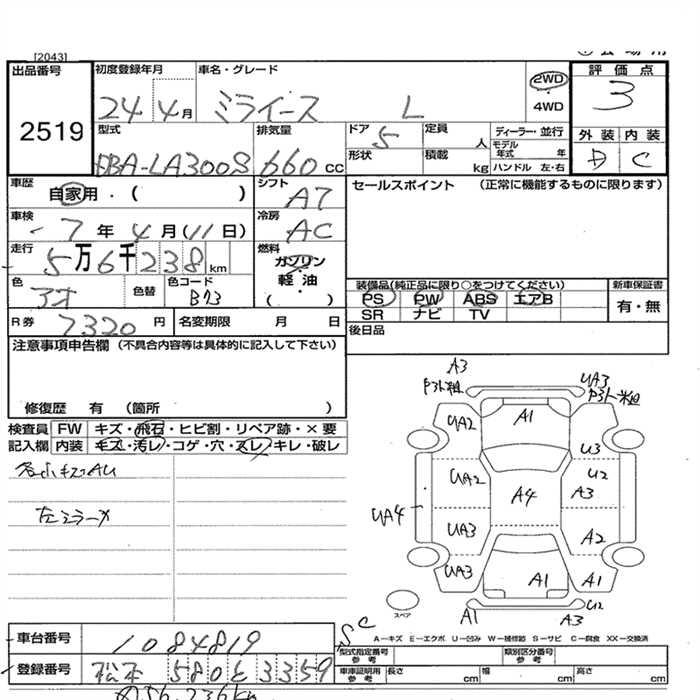 [2043]
出品番号
2519
初度登録年月
24 4月
車名・グレード
ミライース L
2WD
4WD
評価点
3
外装 内装
D C
型式
DBA-LA300S
排気量
660 cc
ドア
5
形状
定員
人
積載
kg
ディーラー・並行
モデル年式 年
ハンドル 左・右
車歴
自家用・( )
シフト
A7
車検
7年4月(11日)
冷房
AC
走行
5万6千238km
燃料
ガソリン
軽油
( )
色
アオ
色替
色コード
B73
R券
7320円
名変期限 月 日
セールスポイント (正常に機能するものに限ります)
装備品(純正品に限り○をつけてください)
PS PW ABS エアB
SR ナビ TV
新車保証書
有・無
後日品
注意事項申告欄 (不具合内容等は具体的に記入して下さい)
修復歴 有 (箇所 )
検査員
記入欄
FW キズ・飛石・ヒビ割・リペア跡・×要
内装 キズ・汚レ・コゲ・穴・スレ・キレ・破レ
各小キズAU
左ミラーメ
A3
UA3
UA2
A1
U3
UA2
U2
A3
A4
UA4
UA3
A2
UA3
A1
A1
A1
U2
A3
スペア
SC
A-キズ E-エクボ U-凹み W-補修跡 S-サビ C-腐食 XX-交換済
車台番号
1084819
登録番号
松本 580 と 3359
型式指定番号
参考
類別区分番号
参考
車検証明用
参考
長さ cm
幅 cm
高さ cm
56,236km